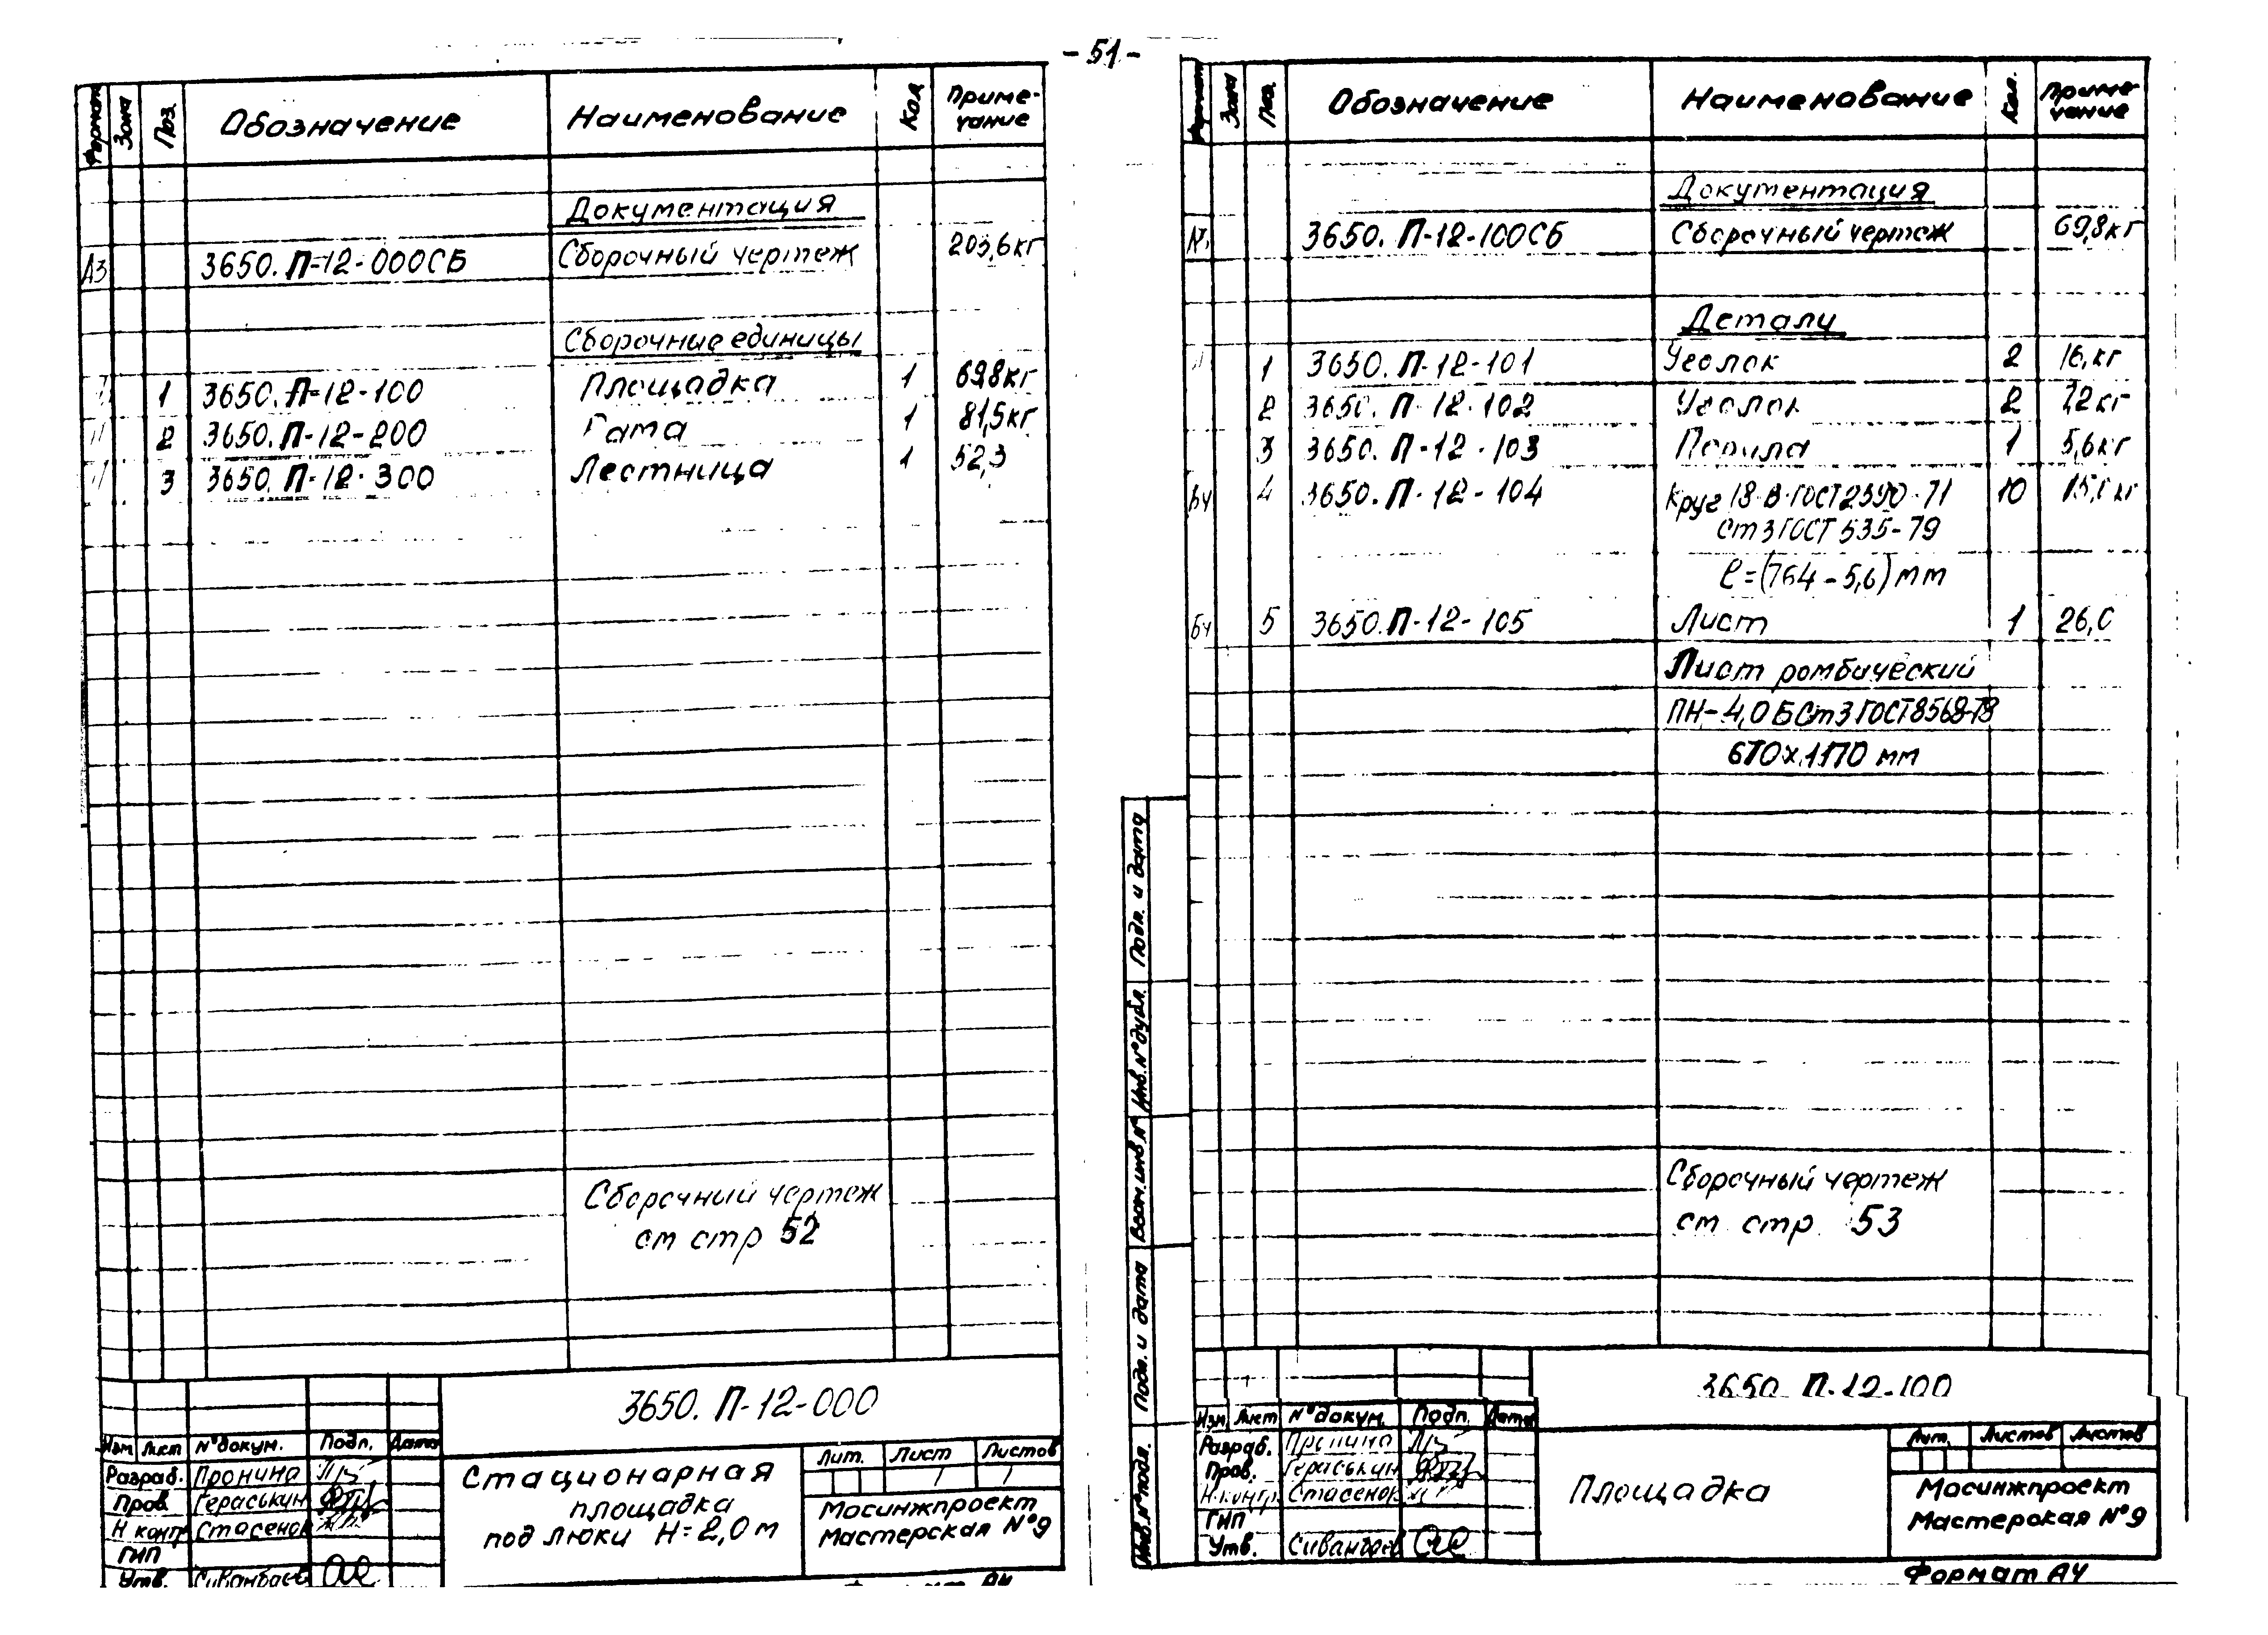 - 51 -
Формат Зона Поз. Обозначение Наименование Кол Приме-
чание
Документация
А3 3650. П-12-000СБ Сборочный чертеж 203,6кг
Сборочные единицы
1 3650. П-12-100 Площадка 1 69,8кг
2 3650. П-12-200 1 81,5кг
3 3650. П-12-300 Лестница 1 52,3
Сборочный чертеж
см стр 52
3650. П-12-000
Изм Лист №докум. Подп. Дата
Разраб. Пронина
Пров. Гераськин
Н контр Стасенок
ГИП
Утв.
Стационарная
площадка
под люки Н=2,0м
Лит. Лист Листов
1 1
Мосинжпроект
Мастерская №9
Формат А4
Формат Зона Поз. Обозначение Наименование Кол. Приме-
чание
Документация
3650. П-12-100СБ Сборочный чертеж 69,8кг
Детали
1 3650. П-12-101 Уголок 2 16,кг
2 3650. П-12-102 Уголок 2 7,2кг
3 3650. П-12-103 Перила 1 5,6кг
Бч 4 3650. П-12-104 Круг 18-В-ГОСТ2590-71 10 кг
Ст3ГОСТ535-79
ℓ=(764-5,6)мм
Бч 5 3650.П-12-105 Лист 1 26,0
Лист ромбический
ПН-4,0БСт3ГОСТ8568-78
670х1170 мм
Сборочный чертеж
см стр 53
Подп. и дата
Инв.№дубл.
Взам.инв.№
Подп. и дата
Инв.№подл.
3650. П-12-100
Изм. Лист №докум. Подп. Дата
Разраб. Пронина
Пров. Гераськин
Н.контр. Стасенок
ГИП
Утв.
Площадка
Лит. Листов Листов
Мосинжпроект
Мастерская №9
Формат А4